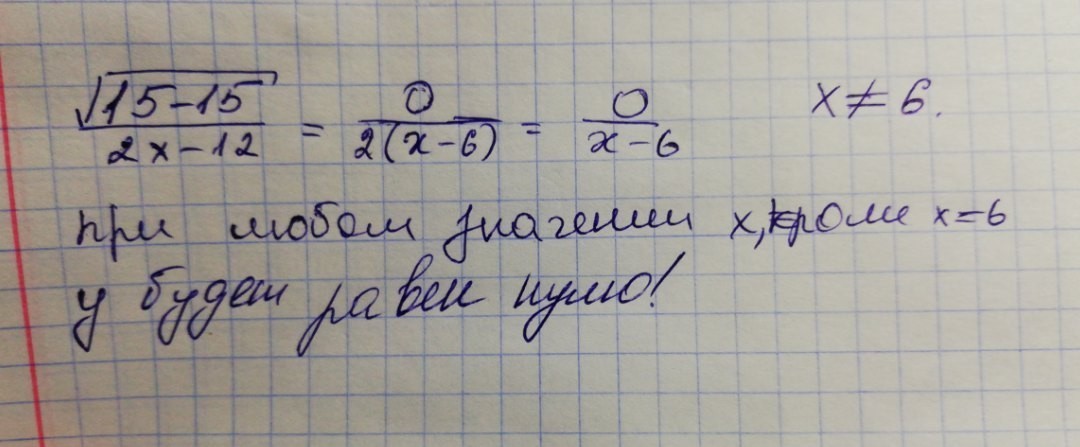 √15-15 / 2x-12 = 0 / 2(x-6) = 0 / x-6 x≠6.
при любом значении x, кроме x=6
y будет равен нулю!